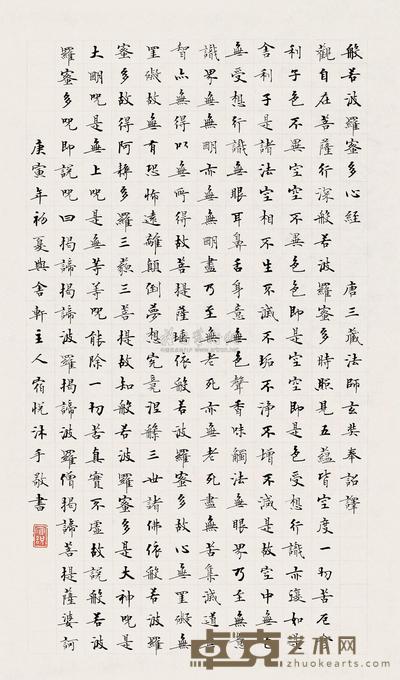 般若波羅蜜多心經　唐三藏法師玄奘奉詔譯
觀自在菩薩行深般若波羅蜜多時照見五蘊皆空度一切苦厄舍
利子色不異空空不異色色即是空空即是色受想行識亦復如是
舍利子是諸法空相不生不滅不垢不淨不增不減是故空中無色
無受想行識無眼耳鼻舌身意無色聲香味觸法無眼界乃至無意
識界無無明亦無無明盡乃至無老死亦無老死盡無苦集滅道無
智亦無得以無所得故菩提薩埵依般若波羅蜜多故心無罣礙無
罣礙故無有恐怖遠離顛倒夢想究竟涅槃三世諸佛依般若波羅
蜜多故得阿耨多羅三藐三菩提故知般若波羅蜜多是大神咒是
大明咒是無上咒是無等等咒能除一切苦真實不虛故說般若波
羅蜜多咒即說咒曰揭諦揭諦波羅揭諦波羅僧揭諦菩提薩婆訶
庚寅年初夏與舍軒主人宿悅沐手敬書
卓克艺术网
zhuokearts.com